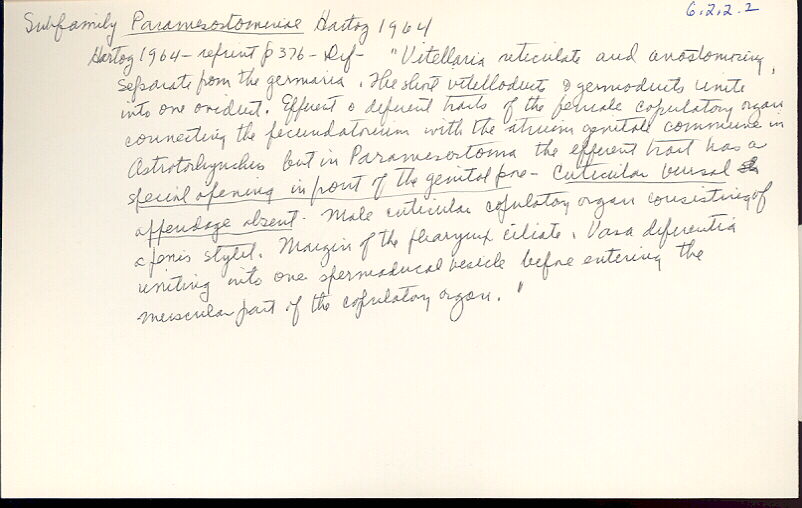 6.2.2.2
Subfamily Paramesostominae Hartog 1964
Hartog 1964 - reprint p 376 - Def - "Vitellaria reticulate and anastomosing,
separate from the germaria. The short vitelloducts & germoducts unite
into one oviduct. Efferent & deferent tracts of the female copulatory organ
connecting the fecundatorium with the atrium genitale commune in
Astrotorhynchus but in Paramesostoma the efferent tract has a
special opening in front of the genital pore - Cuticular bursal
appendage absent. Male cuticular copulatory organ consisting of
a penis stylet. Margin of the pharynx ciliate. Vasa deferentia
uniting into one spermaducal vesicle before entering the
muscular part of the copulatory organ."